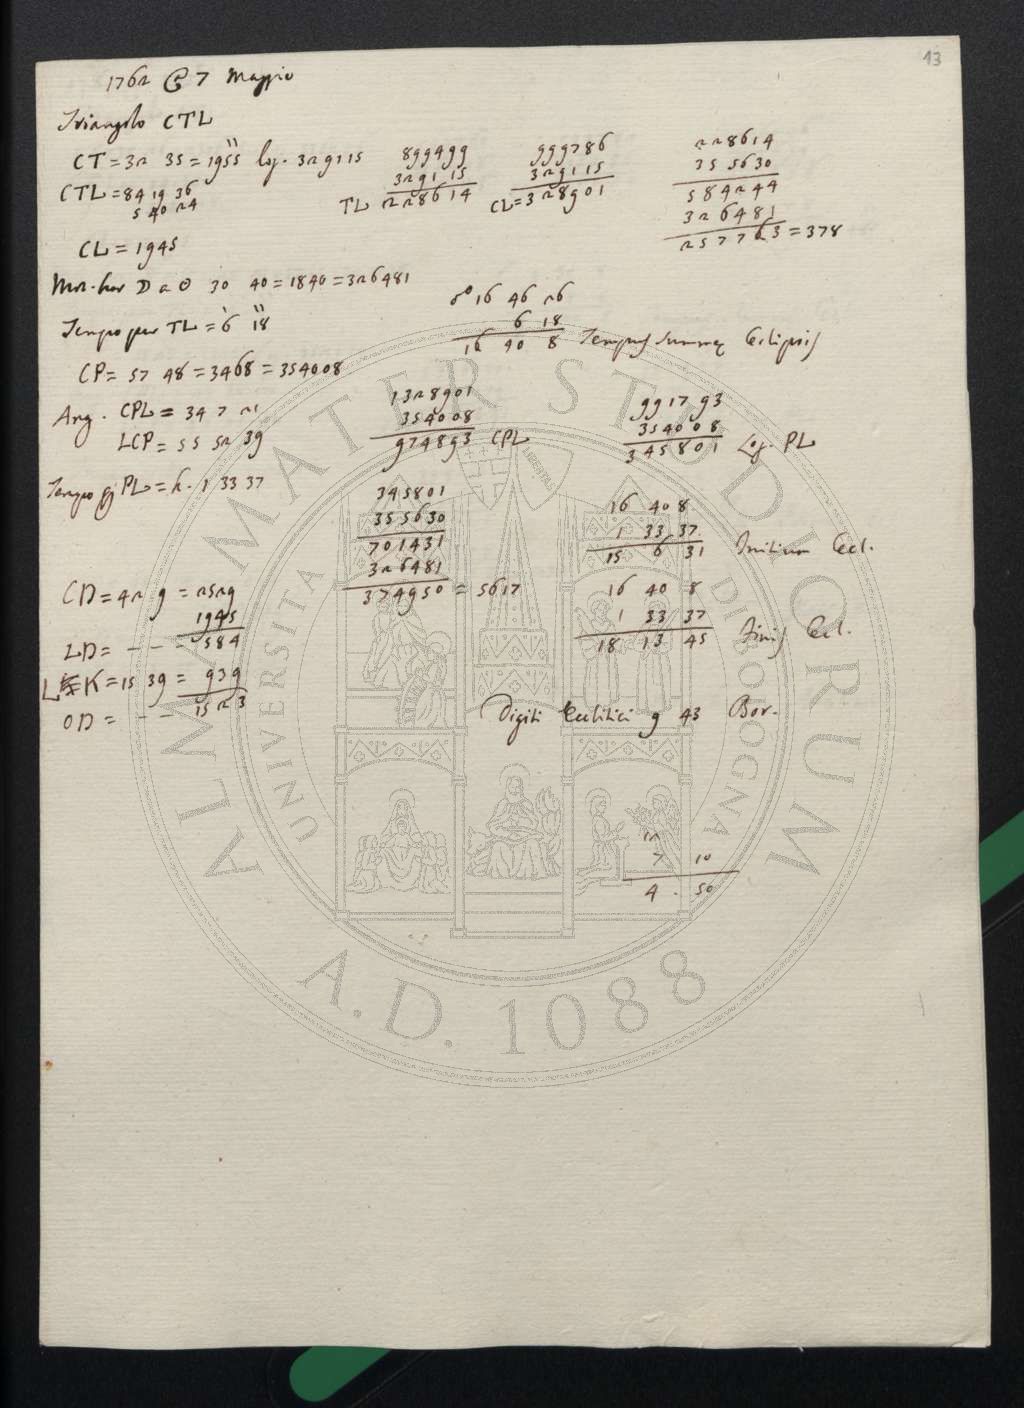 13
1762 7 Maggio
Triangolo CTL
CT = 32 35 = 1955 log. 329115
CTL = 84 19 36
5 40 24
899499
329115
TL 228614
999786
329115
CL = 328901
228614
355630
584244
326481
257763 = 378
CL = 1945
Mot. hor D a O 30 40 = 1840 = 326481
Tempo per TL = 6 18
16 46 26
6 18
16 40 8 Tempus summę Eclipsis
CP = 57 48 = 3468 = 354008
Ang. CPL = 34 7 21
LCP = 55 52 39
1328901
354008
974893 CPL
991793
354008
345801 Log. PL
Tempo PL = h. 1 33 37
345801
355630
701431
326481
374950 = 5617
16 40 8
1 33 37
15 6 31 Initium Ecl.
16 40 8
1 33 37
18 13 45 Finis Ecl.
CD = 42 9 = 2529
1945
LD = - - - 584
LK = 15 39 = 939
OD = - - 1523
Digiti Ecclitici 9 43 Bor.
12
7 10
4 . 50
ALMA MATER STUDIORUM
UNIVERSITÀ DI BOLOGNA
LIBERTAS
A.D. 1088